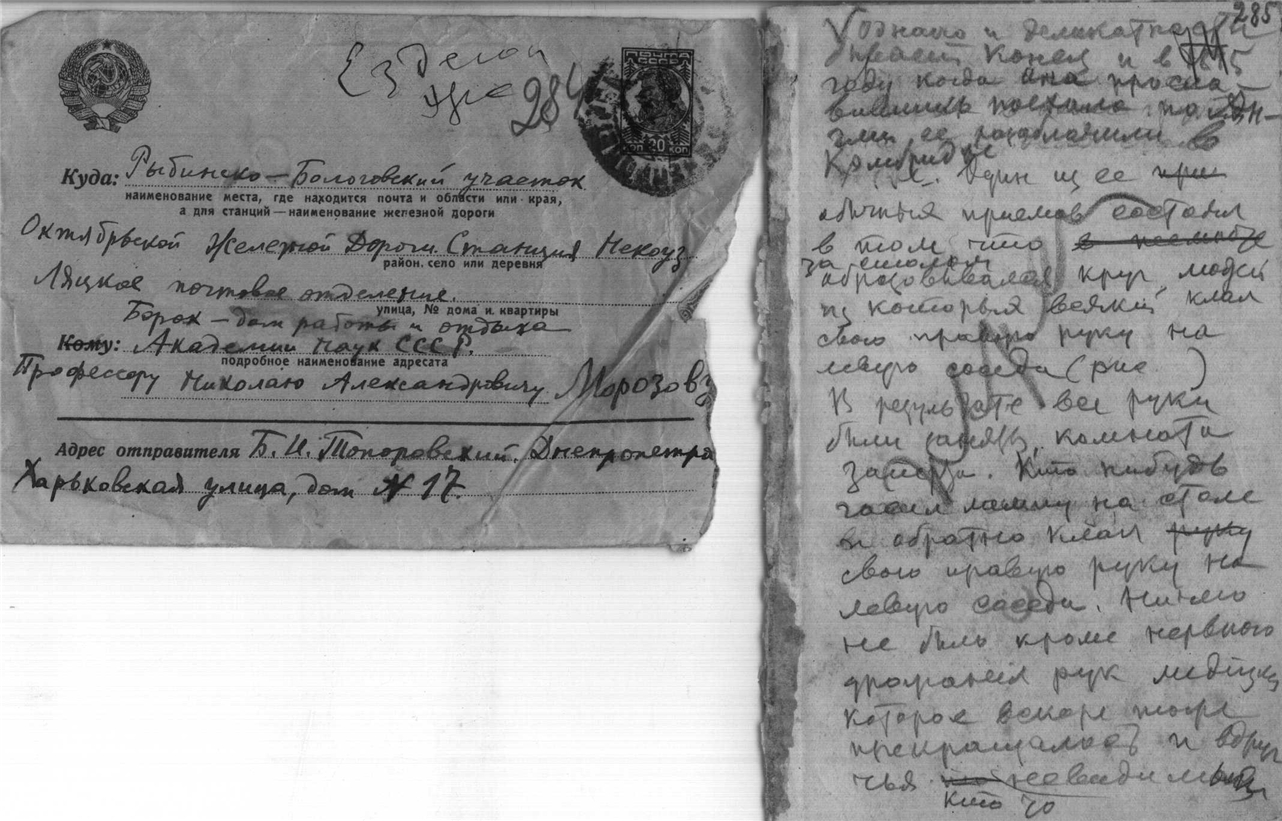 Ездегои
284
ПОЧТА
СССР
20
КОП КОП
Куда: Рыбинско-Бологовский участок
наименование места, где находится почта и области или края,
а для станций — наименование железной дороги
Октябрьской Железной Дороги. Станция Некоуз
район, село или деревня
Ляцкое почтовое отделение.
улица, № дома и квартиры
Борок — дом работы и отдыха
Кому: Академии Наук СССР.
подробное наименование адресата
Профессору Николаю Александровичу Морозовъ
Адрес отправителя Б. И. Топоровский. Днепропетро
Харьковская улица, дом № 17.
285
У одного и деликатне
бывает конец и в
году когда она просла
вившись поехала по
ее разоблачили в
Кембридже
Один из ее при
обычных приемов состоял
в том что
за столом
образовывался круг людей
из которых всякий клал
свою правую руку на
левую соседа (рис )
В результате все руки
были заняты, комната
заперта. Кто нибудь
гасил лампу на столе
и обратно клал руку
свою правую руку на
левую соседа. Ничего
не было кроме нервного
дрожания рук медиума
которое вскоре тоже
прекращалось и вдруг
чья невидимый
кто то